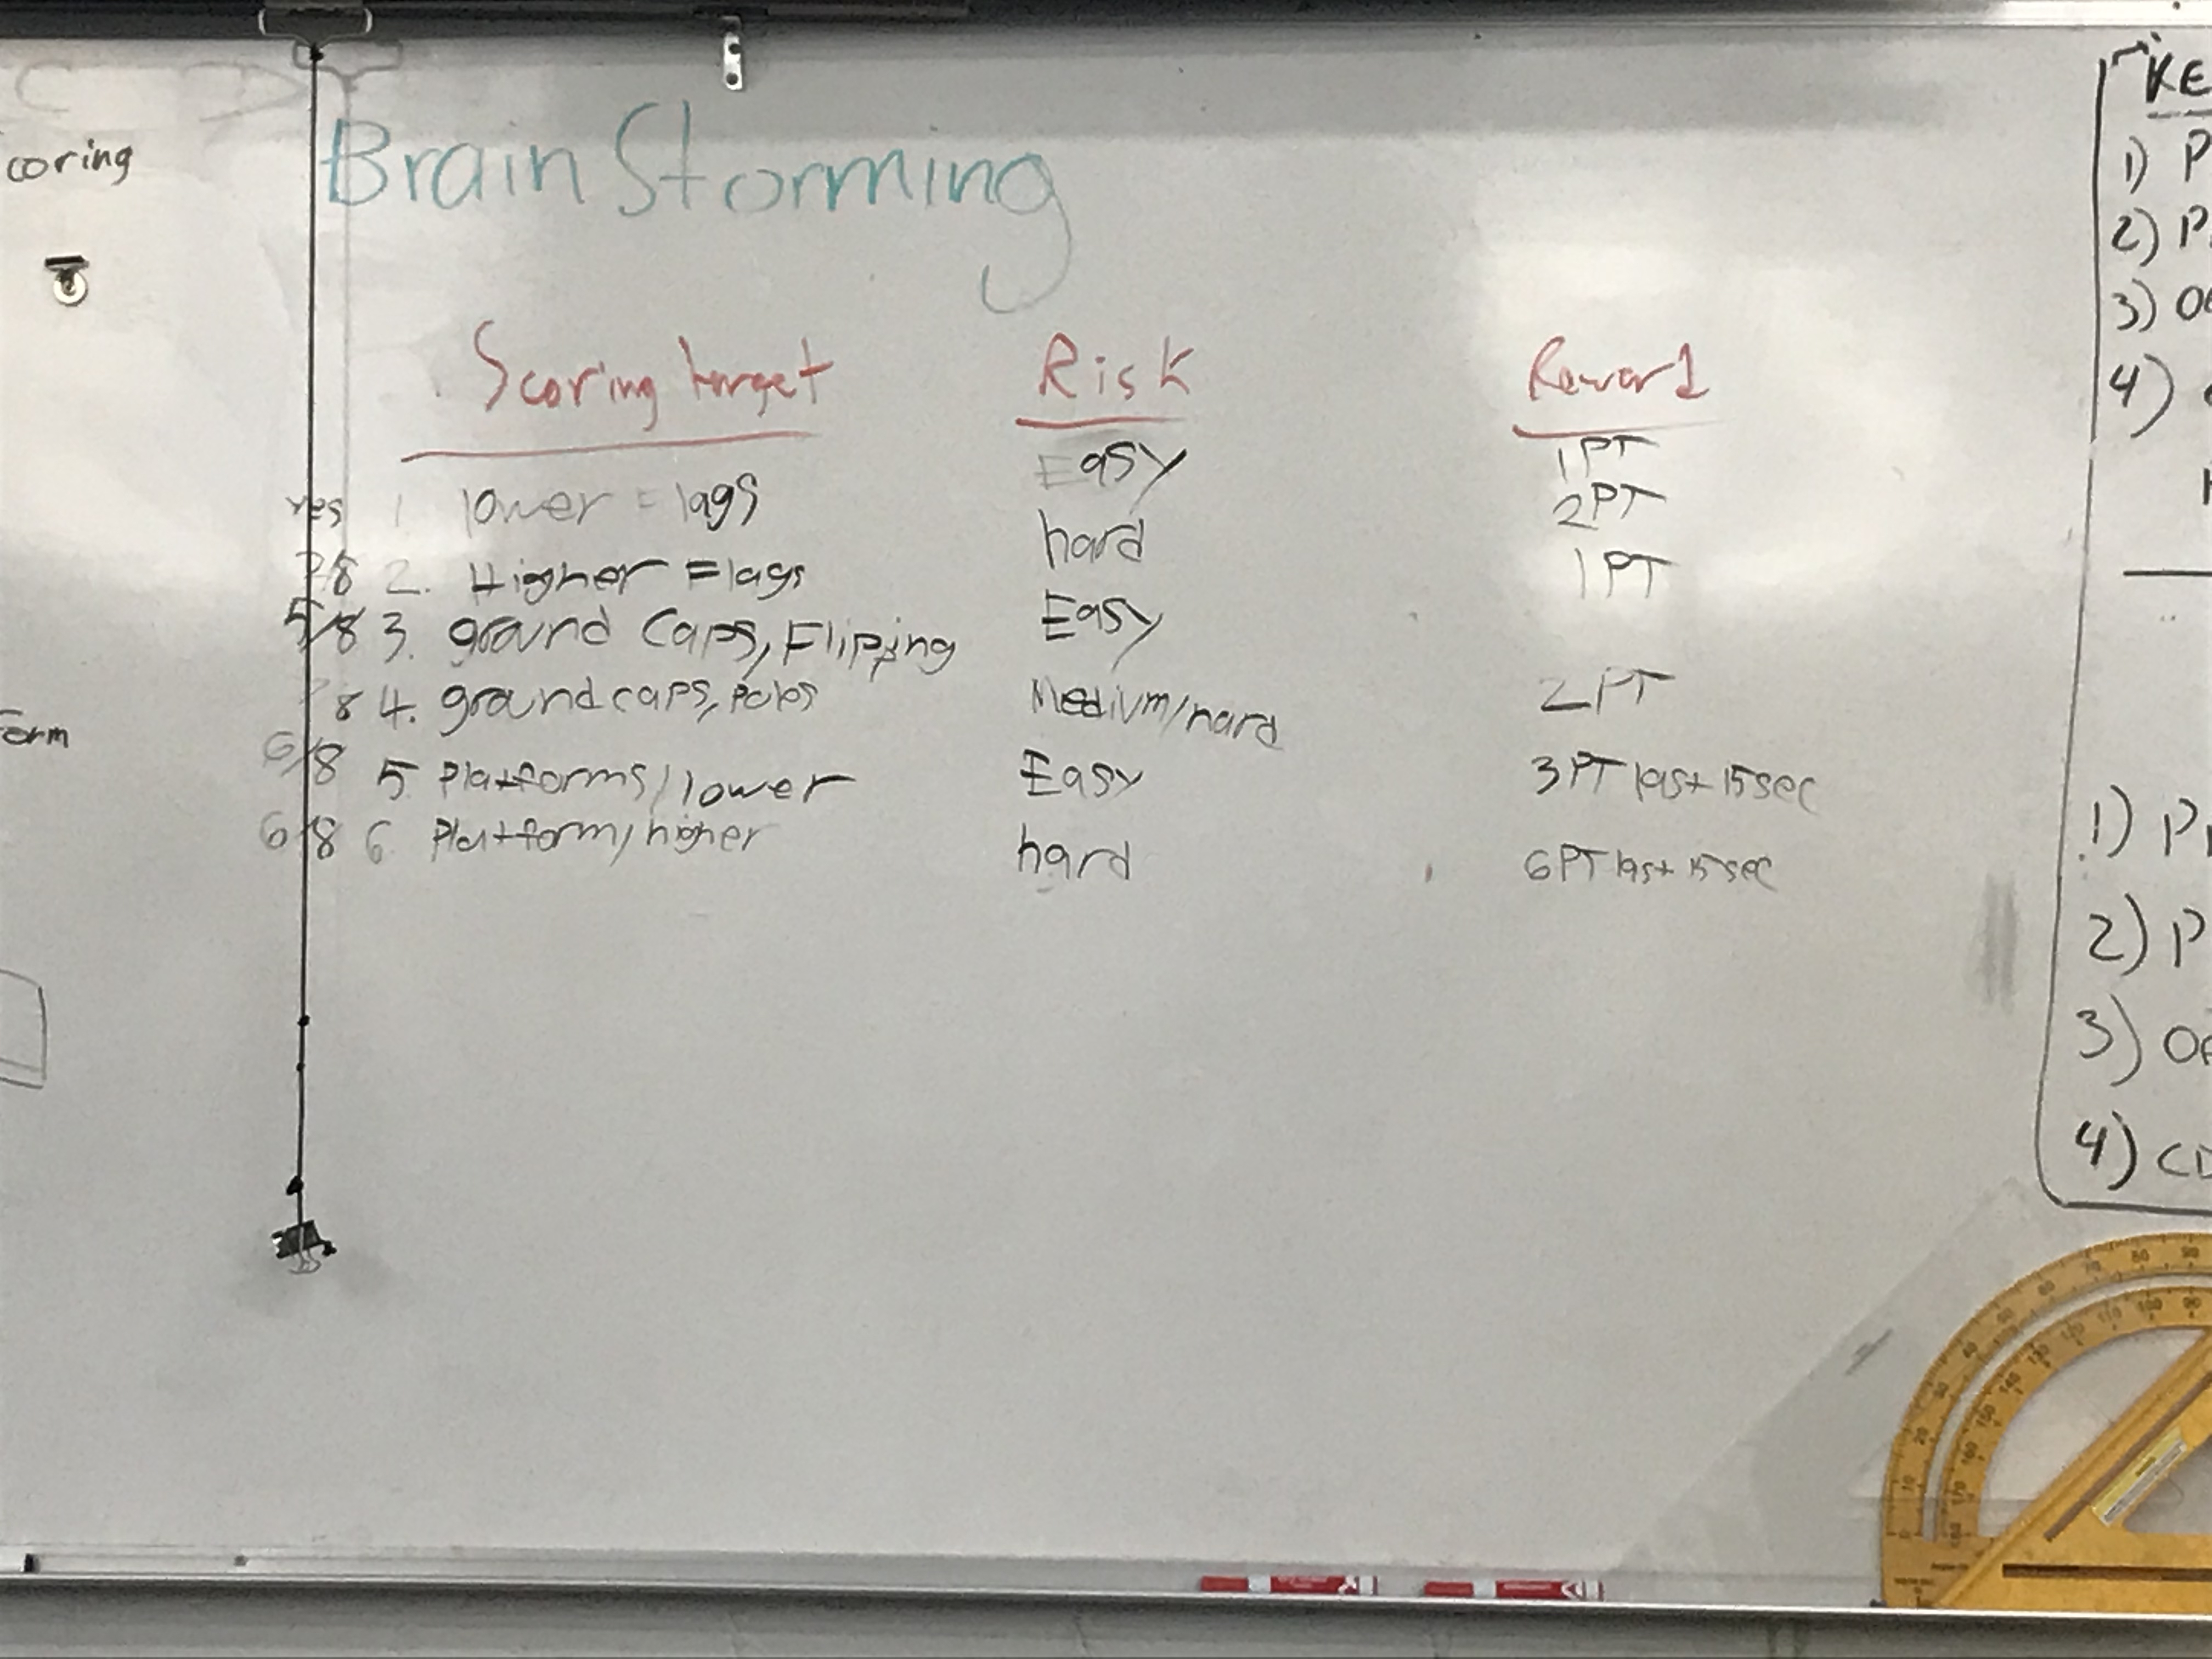 coring
Brain Storming
Scoring target Risk Reward
yes 1. lower = lags Easy 1PT
/8 2. Higher = lags hard 2PT
5/8 3. ground Caps, Flipping Easy 1PT
8 4. ground caps, Poles Medium/hard 2PT
6/8 5 Platforms/lower Easy 3PT last 15sec
6/8 6 Platform/higher hard 6PT last 15sec
orm
KE
1) P
2) P
3) O
4)
1) P
2) P
3) O
4) C